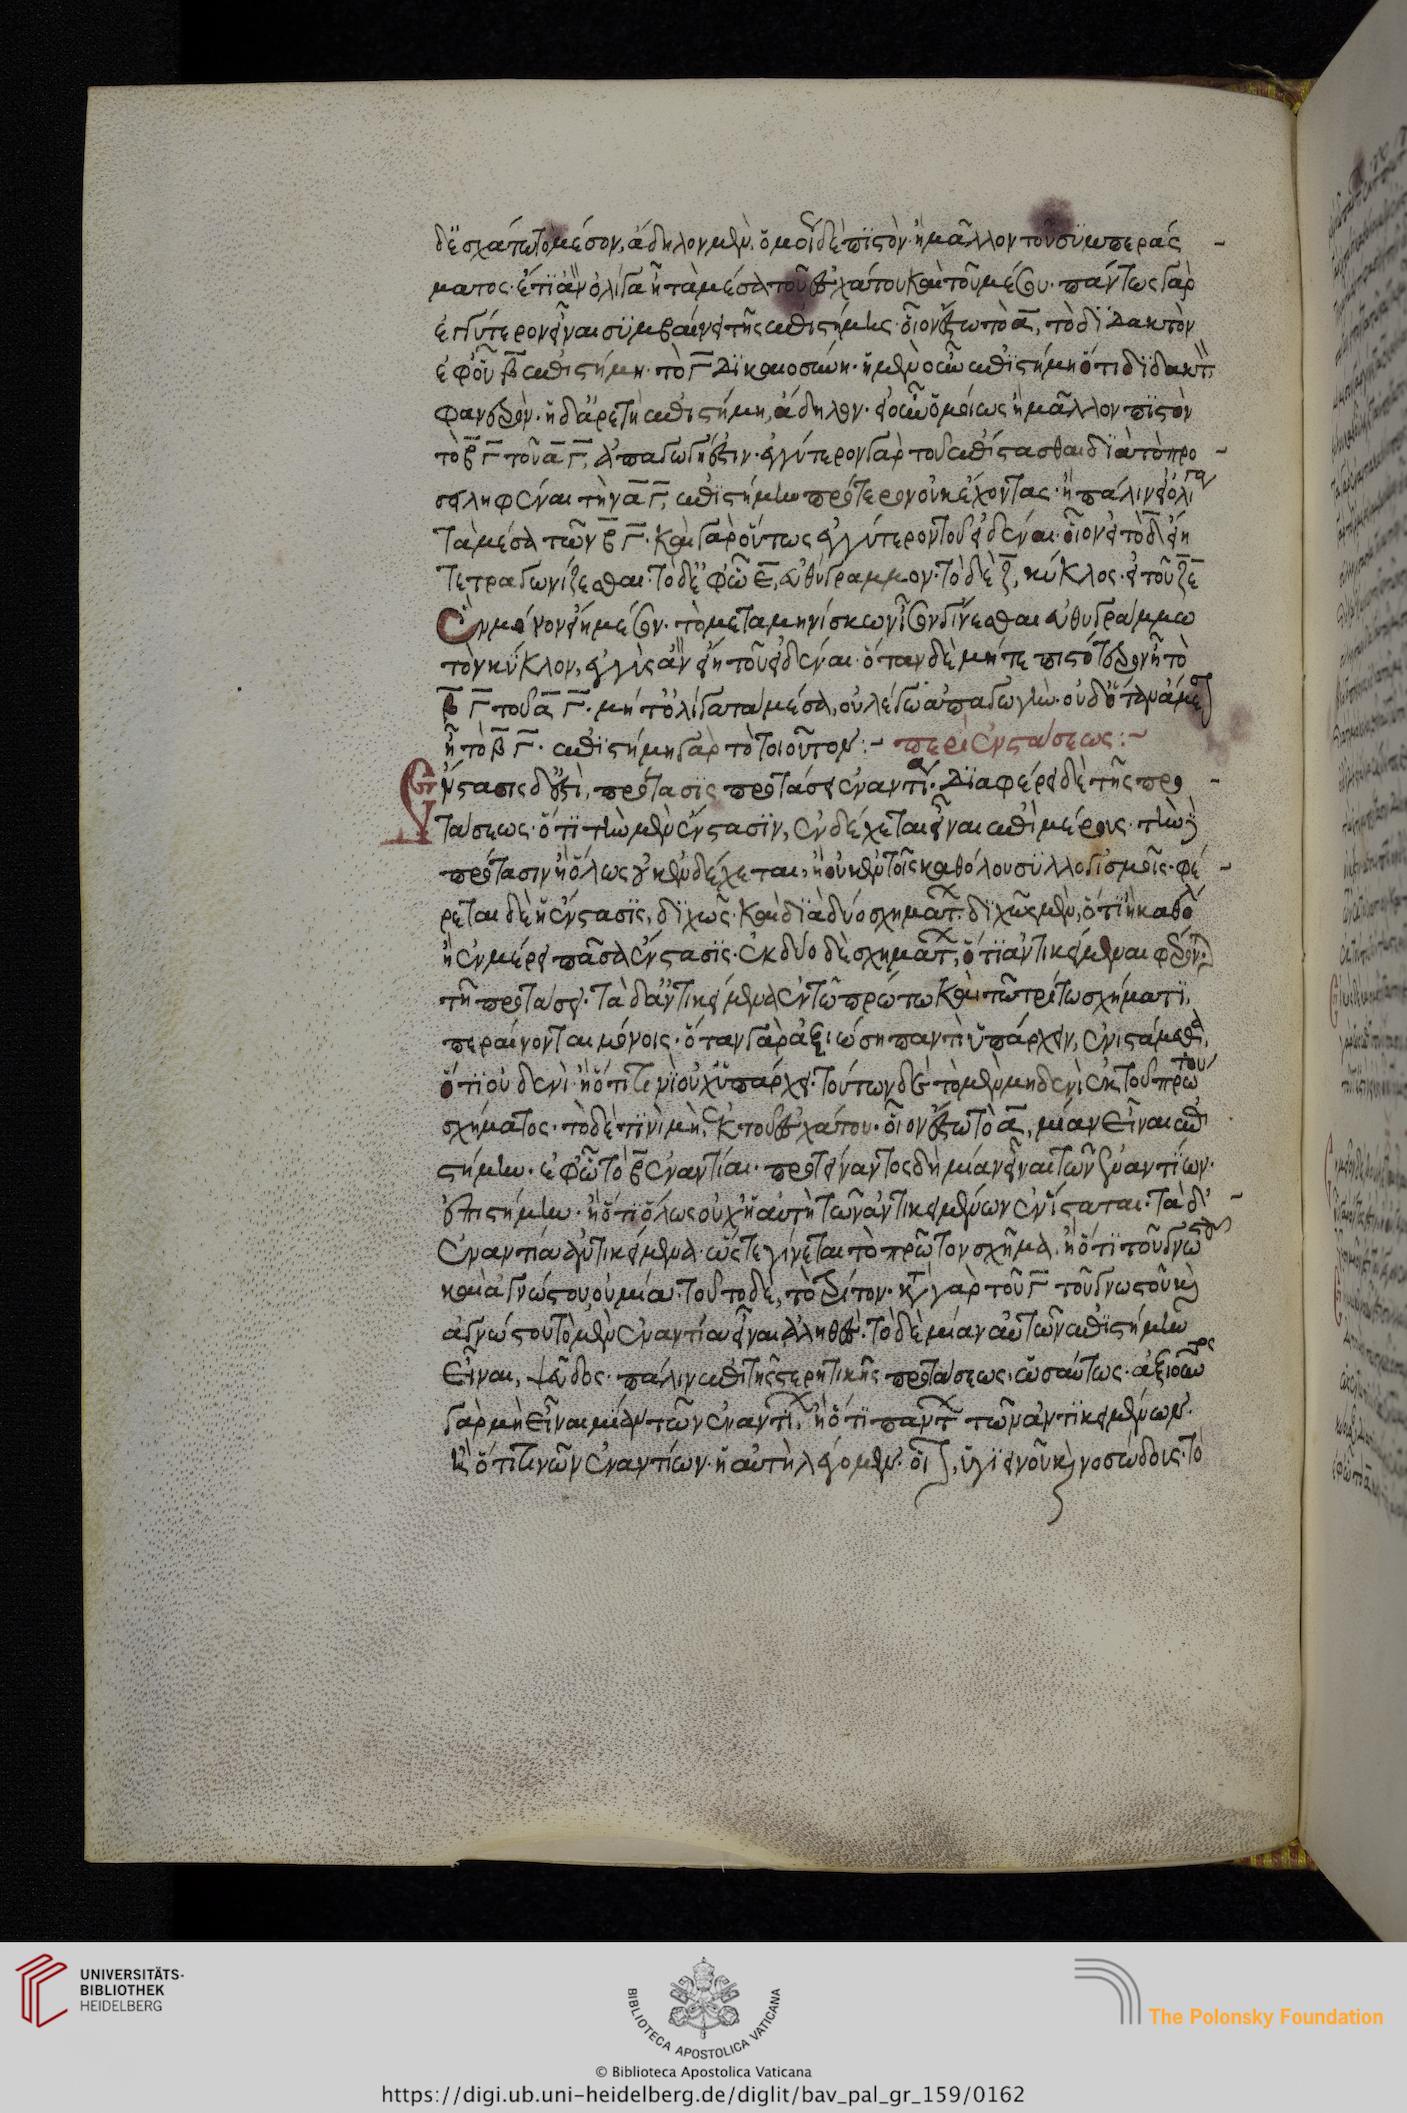 δ' ἐσχάτω τὸ μέσον, ἄδηλον μὲν, ὁμοίως δὲ πιστὸν ἢ μᾶλλον τοῦ συμπεράσ
ματος· ἔτι ἂν ὀλίγα ἦ τὰ μέσα τοῦ ἐσχάτου καὶ τοῦ μέσου· πάντως γὰρ
ἐγγύτερον εἶναι συμβαίνει τῆς ἐπιστήμης· οἷον ἔστω τὸ α, τὸ διδακτὸν
ἐφ' οὗ β ἐπιστήμη· τὸ γ δικαιοσύνη· ἡ μὲν οὖν ἐπιστήμη ὅτι διδακτὸν
φανερόν· ἡ δ' ἀρετὴ ἐπιστήμη, ἄδηλον· εἰ οὖν ὁμοίως ἢ μᾶλλον πιστὸν
τὸ βγ τοῦ αγ, ἀπαγωγή ἐστιν· ἐγγύτερον γὰρ τοῦ ἐπίστασθαι διὰ τὸ προ
σειληφέναι τὴν αγ ἐπιστήμην πρότερον οὐκ ἔχοντας· ἢ πάλιν εἰ ὀλίγα
τὰ μέσα τῶν βγ· καὶ γὰρ οὕτως ἐγγύτερον τοῦ εἰδέναι· οἷον εἰ τὸ δ εἴη
τετραγωνίζεσθαι· τὸ δ' ἐφ' ὧ ε, εὐθύγραμμον· τὸ δὲ ζ, κύκλος· εἰ τοῦ ζε
ἓν μόνον εἴη μέσον· τὸ μετὰ μηνίσκων ἴσον γίνεσθαι εὐθυγράμμω
τὸν κύκλον, ἐγγὺς ἂν εἴη τοῦ εἰδέναι· ὅταν δὲ μήτε πιστότερον ἦ τὸ
βγ τοῦ αγ· μήτ' ὀλίγα τὰ μέσα, οὐ λέγω ἀπαγωγήν· οὐδ' ὅταν ἄμεσον
ἦ τὸ βγ· ἐπιστήμη γὰρ τὸ τοιοῦτον:– περὶ ἐνστάσεως:–
Ἔνστασις δ' ἐστὶ, πρότασις προτάσει ἐναντία· διαφέρει δὲ τῆς προ
τάσεως· ὅτι τὴν μὲν ἔνστασιν, ἐνδέχεται εἶναι ἐπὶ μέρους· τὴν δὲ
πρότασιν ἢ ὅλως οὐκ ἐνδέχεται, ἢ οὐκ ἐν τοῖς καθόλου συλλογισμοῖς· φέ
ρεται δὲ ἡ ἔνστασις, διχῶς· καὶ διὰ δύο σχημάτων· διχῶς μὲν, ὅτι ἢ καθόλου
ἢ ἐν μέρει πᾶσα ἔνστασις· ἐκ δύο δὲ σχημάτων, ὅτι ἀντικείμεναι φέρονται
τῆ προτάσει· τὰ δ' ἀντικείμενα ἐν τῶ πρώτω καὶ τῶ τρίτω σχήματι,
περαίνονται μόνοις· ὅταν γὰρ ἀξιώση παντὶ ὑπάρχειν, ἐνιστάμεθα,
ὅτι οὐδενὶ· ἢ ὅτι τινὶ οὐχ ὑπάρχει· τούτων δὲ τὸ μὲν μηδενὶ ἐκ τοῦ πρώτου
σχήματος· τὸ δὲ τινὶ μὴ, ἐκ τοῦ ἐσχάτου· οἷον ἔστω τὸ α, μίαν εἶναι ἐπι
στήμην· ἐφ' ὧ τὸ β ἐναντία· προτείναντος δὴ μίαν εἶναι τῶν ἐναντίων·
ἐπιστήμην· ἢ ὅτι ὅλως οὐχ ἡ αὐτὴ τῶν ἀντικειμένων ἐνίσταται· τὰ δ'
ἐναντία ἀντικείμενα· ὥστε γίνεται τὸ πρῶτον σχῆμα, ἢ ὅτι τοῦ γνωστοῦ
καὶ ἀγνώστου οὐ μία· τοῦτο δὲ, τὸ τρίτον· κατὰ γὰρ τοῦ γ τοῦ γνωστοῦ καὶ
ἀγνώστου τὸ μὲν ἐναντία εἶναι ἀληθές· τὸ δὲ μίαν αὐτῶν ἐπιστήμην
εἶναι, ψεῦδος· πάλιν ἐπὶ τῆς στερητικῆς προτάσεως, ὡσαύτως· ἀξιοῦντος
γὰρ μὴ εἶναι μίαν τῶν ἐναντίων, ἢ ὅτι πάντων τῶν ἀντικειμένων·
ἢ ὅτι τινῶν ἐναντίων· ἡ αὐτὴ λέγομεν· οἷον, ὑγιεινοῦ καὶ νοσώδους· τὸ
UNIVERSITÄTS-
BIBLIOTHEK
HEIDELBERG
BIBLIOTECA APOSTOLICA VATICANA
The Polonsky Foundation
© Biblioteca Apostolica Vaticana
https://digi.ub.uni-heidelberg.de/diglit/bav_pal_gr_159/0162